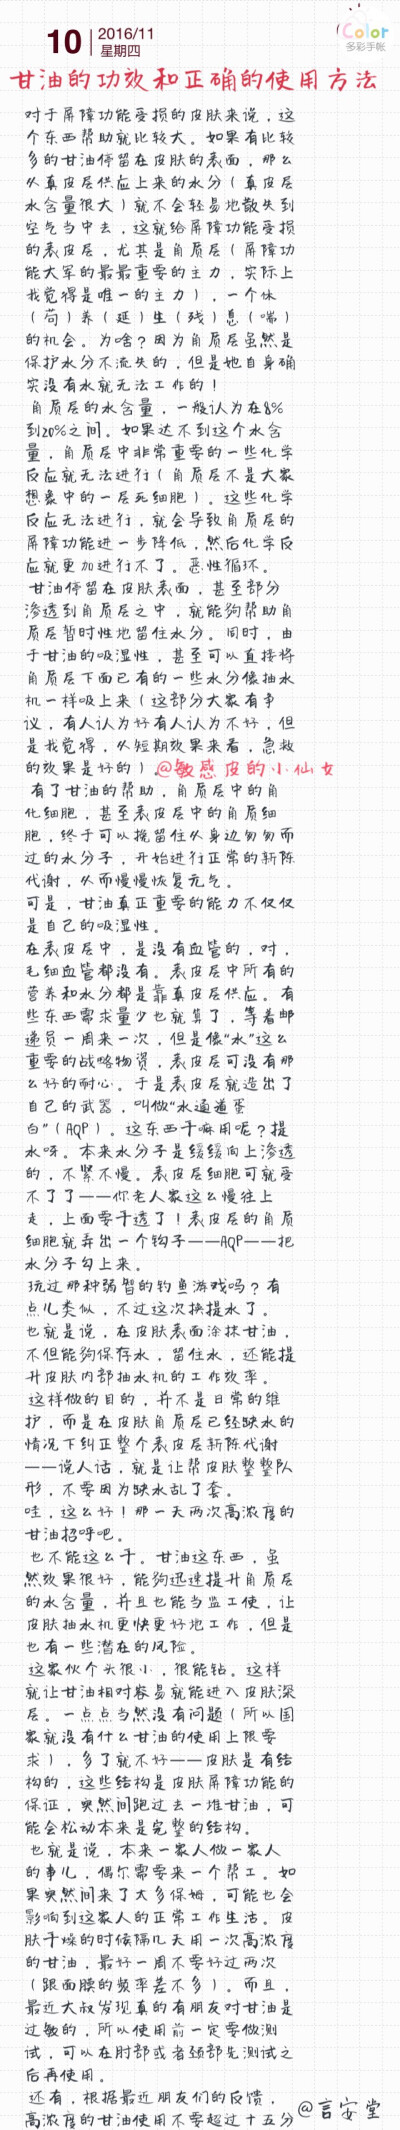 10
2016/11
星期四
Color
多彩手帐
甘油的功效和正确的使用方法
对于屏障功能受损的皮肤来说，这
个东西帮助就比较大。如果有比较
多的甘油停留在皮肤的表面，那么
从真皮层供应上来的水分（真皮层
水含量很大）就不会轻易地散失到
空气当中去，这就给屏障功能受损
的表皮层，尤其是角质层（屏障功
能大军的最最重要的主力，实际上
我觉得是唯一的主力），一个休
（苟）养（延）生（残）息（喘）
的机会。为啥？因为角质层虽然是
保护水分不流失的，但是她自身确
实没有水就无法工作的！
角质层的水含量，一般认为在8%
到20%之间。如果达不到这个水含
量，角质层中非常重要的一些化学
反应就无法进行（角质层不是大家
想象中的一层死细胞）。这些化学
反应无法进行，就会导致角质层的
屏障功能进一步降低，然后化学反
应就更加进行不了。恶性循环。
甘油停留在皮肤表面，甚至部分
渗透到角质层之中，就能够帮助角
质层暂时性地留住水分。同时，由
于甘油的吸湿性，甚至可以直接将
角质层下面已有的一些水分像抽水
机一样吸上来（这部分大家有争
议，有人认为好有人认为不好，但
是我觉得，从短期效果来看，急救
的效果是好的）。@敏感皮的小仙女
有了甘油的帮助，角质层中的角
化细胞，甚至表皮层中的角质细
胞，终于可以挽留住从身边匆匆而
过的水分子，开始进行正常的新陈
代谢，从而慢慢恢复元气。
可是，甘油真正重要的能力不仅仅
是自己的吸湿性。
在表皮层中，是没有血管的，对，
毛细血管都没有。表皮层中所有的
营养和水分都是靠真皮层供应。有
些东西需求量少也就算了，等着邮
递员一周来一次，但是像“水”这么
重要的战略物资，表皮层可没有那
么好的耐心。于是表皮层就造出了
自己的武器，叫做“水通道蛋
白”（AQP）。这东西干嘛用呢？提
水呀。本来水分子是缓缓向上渗透
的，不紧不慢。表皮层细胞可就受
不了了——你老人家这么慢往上
走，上面要干透了！表皮层的角质
细胞就弄出一个钩子——AQP——把
水分子勾上来。
玩过那种弱智的钓鱼游戏吗？有
点儿类似，不过这次换提水了。
也就是说，在皮肤表面涂抹甘油，
不但能够保存水，留住水，还能提
升皮肤内部抽水机的工作效率。
这样做的目的，并不是日常的维
护，而是在皮肤角质层已经缺水的
情况下纠正整个表皮层新陈代谢
——说人话，就是让帮皮肤整整队
形，不要因为缺水乱了套。
哇，这么好！那一天两次高浓度的
甘油招呼吧。
也不能这么干。甘油这东西，虽
然效果很好，能够迅速提升角质层
的水含量，并且也能当监工使，让
皮肤抽水机更快更好地工作，但是
也有一些潜在的风险。
这家伙个头很小，很能钻。这样
就让甘油相对容易就能进入皮肤深
层。一点点当然没有问题（所以国
家就没有什么甘油的使用上限要
求），多了就不好——皮肤是有结
构的，这些结构是皮肤屏障功能的
保证，突然间跑过去一堆甘油，可
能会松动本来是完整的结构。
也就是说，本来一家人做一家人
的事儿，偶尔需要来一个帮工。如
果突然间来了太多保姆，可能也会
影响到这家人的正常工作生活。皮
肤干燥的时候隔几天用一次高浓度
的甘油，最好一周不要好过两次
（跟面膜的频率差不多）。而且，
最近大叔发现真的有朋友对甘油是
过敏的，所以使用前一定要做测
试，可以在肘部或者颈部先测试之
后再使用。
还有，根据最近朋友们的反馈，
高浓度的甘油使用不要超过十五分
@言安堂